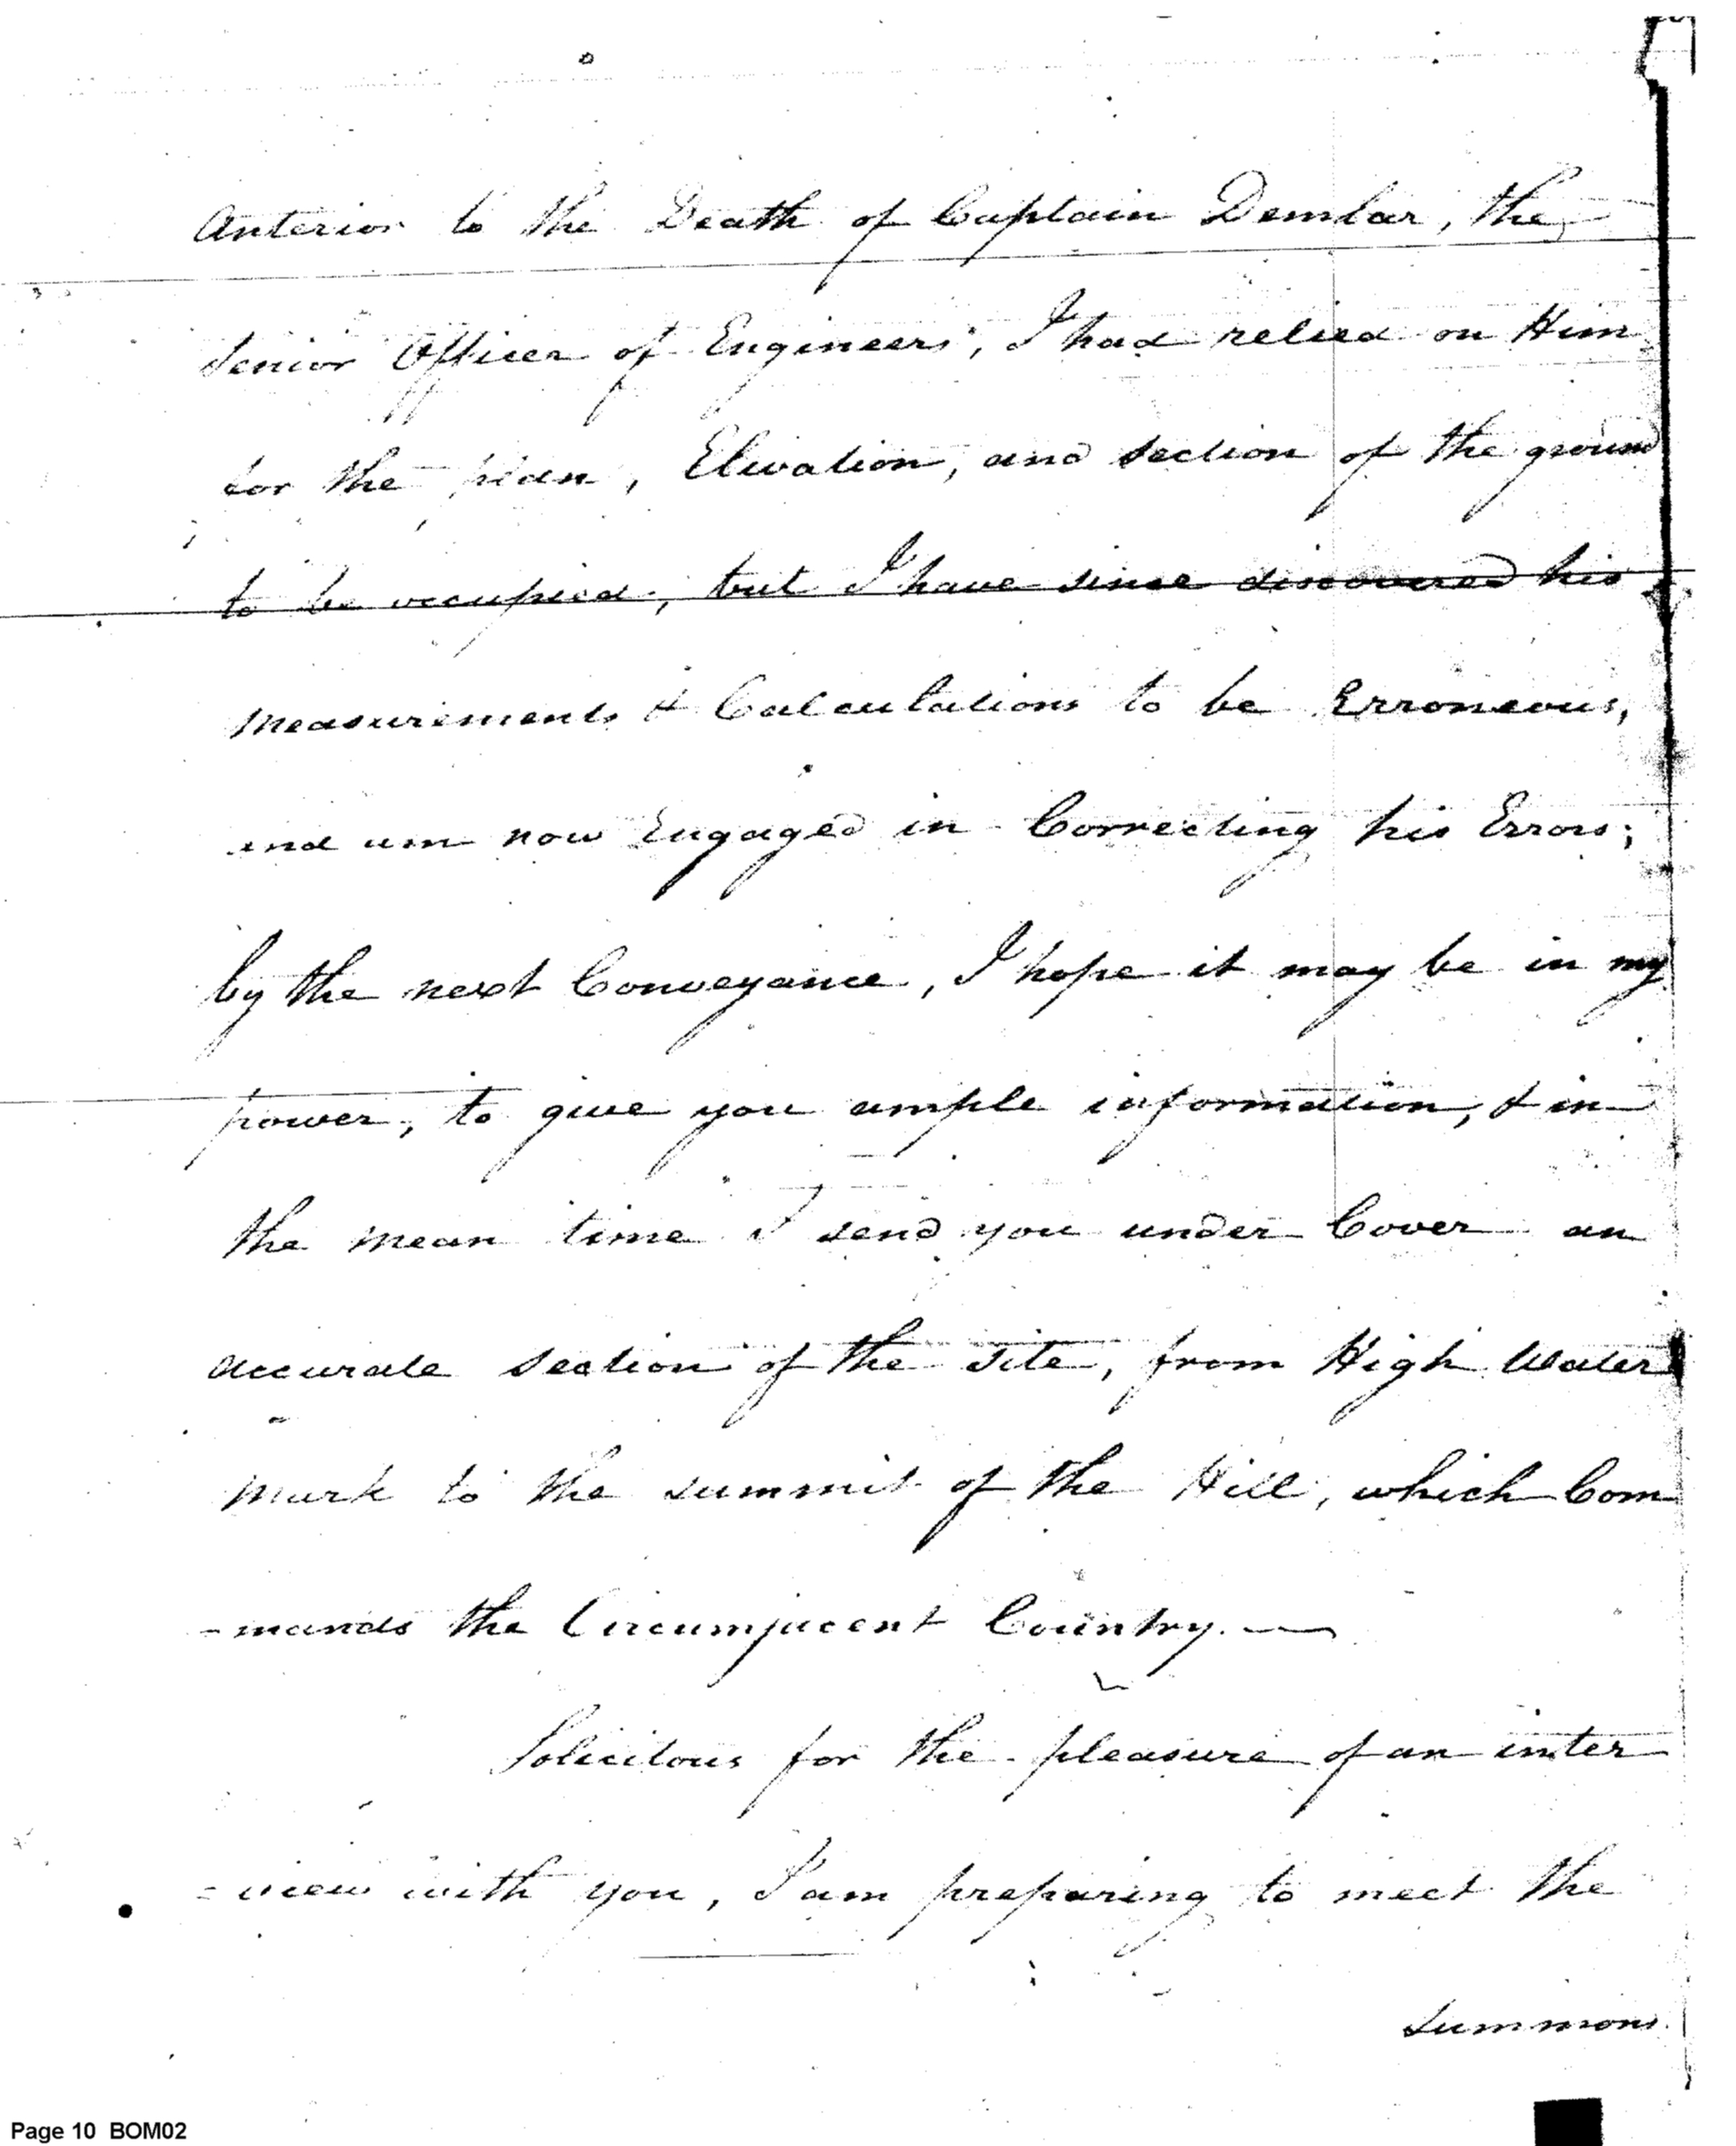 Anterior to the Death of Captain Demlar, the
Senior Officer of Engineers, I had relied on Him
for the plan, Elivation, and section of the ground
to be occupied, but I have since discovered his
measurements & Calculations to be Erroneous,
and am now Engaged in Correcting his Errors;
by the next Conveyance, I hope it may be in my
power, to give you ample information, & in
the mean time I send you under Cover an
accurate section of the site, from High Water
mark to the summit of the Hill, which Com
-mands the Circumjacent Country. —
Solicitous for the pleasure of an inter
=view with you, I am preparing to meet the
summons
Page 10 BOM02